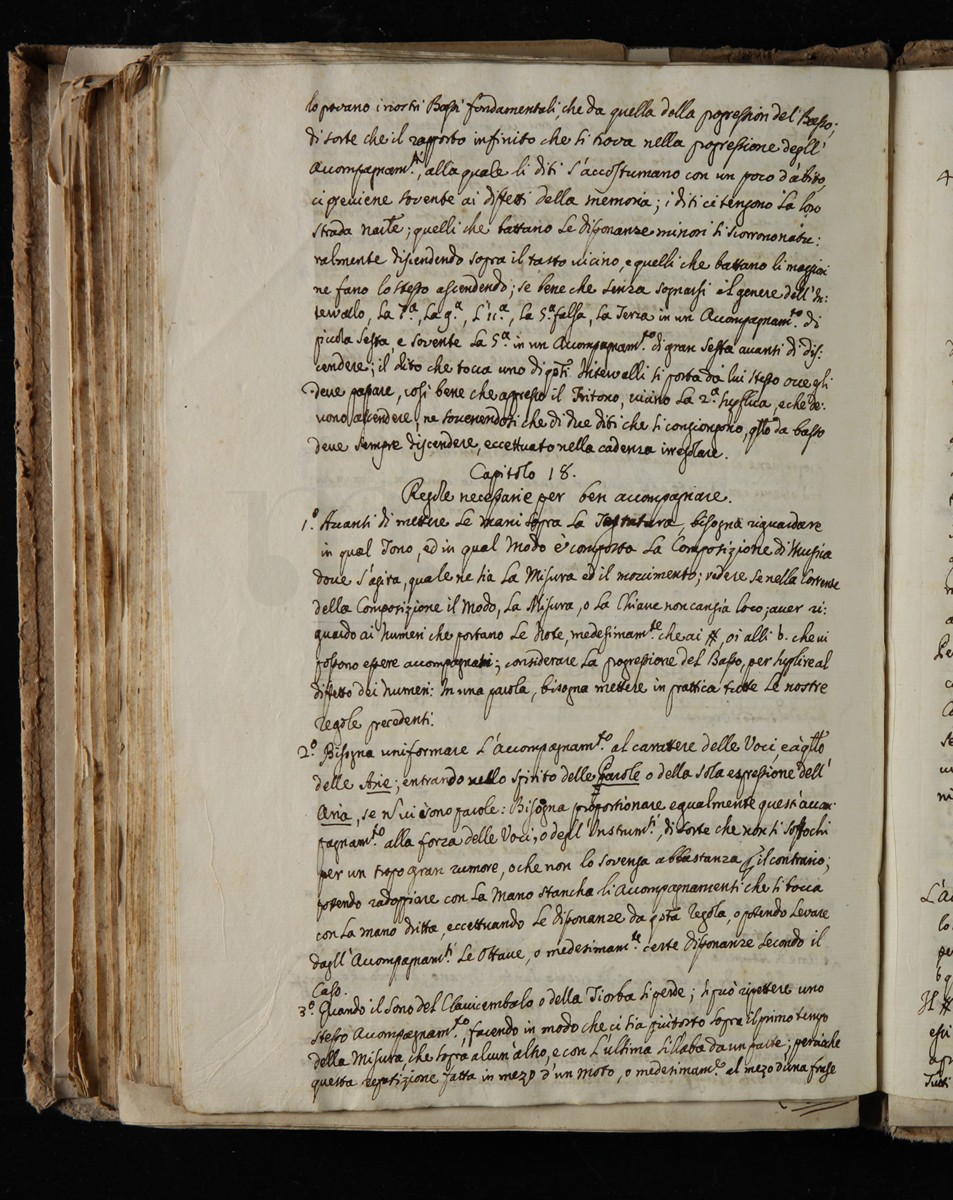 lo provano i nostri Bassi fondamentali, che da quella della progression del Basso;
di sorte che il rapporto infinito che si trova nella progressione degll'
Accompagnam.ti, alla quale li diti s'accostumano con un poco d'abito
ci previene sovente ai diffetti della memoria; i diti ci tengono la loro
strada                ; quelli che battano le dissonanze minori si scorrono natu:
ralmente discendendo sopra il tasto vicino, e quelli che battano li maggiori
ne fano lo stesso ascendendo; se bene che senza sognarsi il genere dell'In:
tervallo, La 7.a, La 9.a, L'11.a, La 5.a falsa, La Terza in un Accompagnam.to di
piccola sesta, e sovente La 5.a in un Accompagnam.to di gran sesta avanti di dis:
cendere; il dito che tocca uno di qsti. Intervalli si porta da lui stesso ove egli
deve passare, così bene che appresso il Tritono, vicino La 2.a suplica, e che de:
vono ascendere, ne sovenendosi che di due diti che si congiongono, qllo da basso
deve sempre discendere, eccettuato nella cadenza irregolare.
Capitolo 18.
Regole necessarie per ben accompagnare.
1.o Avanti di mettere le mani sopra La Tastatura, bisogna riguardare
in qual Tono, ed in qual Modo è composta La Composizione di Musica
dove s'agira, quale ne sia La Misura ed il movimento; vedere se nella Corrente
della Composizione il Modo, La Misura, o La Chiave non cangia loco; aver ri:
guardo ai Numeri che portano Le Note, medesimam.te che ai #, o i alli b. che vi
possono essere accompagnati; considerare La progressione del Basso, per suplire al
diffetto dei Numeri: In una parola, bisogna mettere in prattica tutte Le nostre
regole precedenti.
2.o Bisogna uniformare L'Accompagnam.to al carattere delle Voci e à qllo
delle Arie; entrando nello spirito delle Parole o della sola espressione dell'
Aria, se n vi sono parole: Bisogna proportionare egualmente questi accom:
pagnam.to alla forza delle Voci, o degl'Instrum.ti, di sorte che non si soffochi
per un tropo gran rumore, o che non lo sovenga abbastanza p il contrario;
potendo radoppiare con La Mano stancha li Accompagnamenti che si tocca
con La mano dritta, eccettuando Le dissonanze da qsta regola, o potendo Levare
dagll'Accompagnam.ti Le Ottave, o medesimam.te certe dissonanze secondo il
Caso.
3.o Quando il sono del Clavicembalo o della Tiorba si perde; si può ripettere uno
stesso Accompagnam.to, facendo in modo che ci sia piutosto sopra il primo tempo
della Misura che sopra alcun'altro, e con L'ultima sillaba da un parte; perciòche
questa repetizione fatta in mezo d'un Moto, o medesimam.e al mezo d'una frase